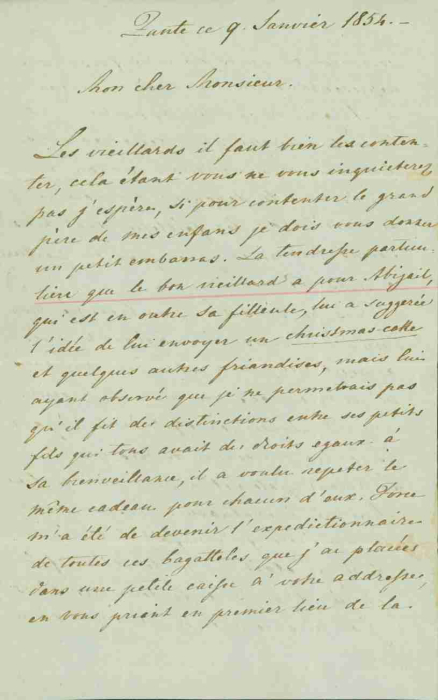 Zante ce 9. Janvier 1854. -
Mon cher Monsieur.
Les vieillards il faut bien les conten-
ter, cela étant vous ne vous inquieterez
pas j'espère, si pour contenter le grand
père de mes enfans je dois vous donner
un petit embarras. La tendresse particu-
lière que le bon vieillard a pour Abigail,
qui est en outre sa filleule, lui a suggerée
l'idée de lui envoyer un chrissmas-cake
et quelques autres friandises, mais lui
ayant observé que je ne permetrais pas
qu'il fit des distinctions entre ses petits
fils qui tous avait des droits egaux à
sa bienveillance, il a voulu repeter le
même cadeau pour chacun d'eux. Force
m'a été de devenir l'expedictionnaire
de toutes ces bagatteles que j'ai placées
dans une petite caisse à votre addresse,
en vous priant en premier lieu de la